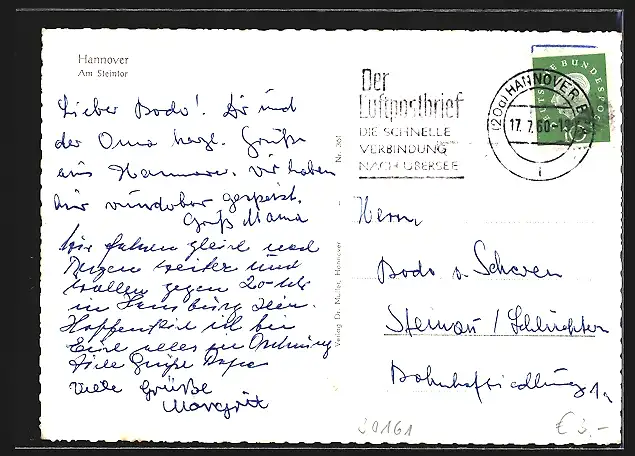 Hannover
Am Steintor
Lieber Bodo! Dir und
der Oma herzl. Grüße
aus Hannover. Wir haben
hier wunderbar gespeist.
Gruß Mama
Wir fahren gleich nach
weiter und
wollen gegen 20 Uhr
in sein.
Hoffentlich ist bei
Euch alles in Ordnung
Viele Grüße Papa
Viele Grüße
Margrit
Verlag Dr. Muller, Hannover
Nr. 361
Der
Luftpostbrief
DIE SCHNELLE
VERBINDUNG
NACH ÜBERSEE
(20a) HANNOVER
17.7.60
i
DEUTSCHE BUNDESPOST
Herrn
Bodo v. Scheven
Steinau / Schlüchtern
Bahnhofsiedlung 1a
20161
€ 3,-